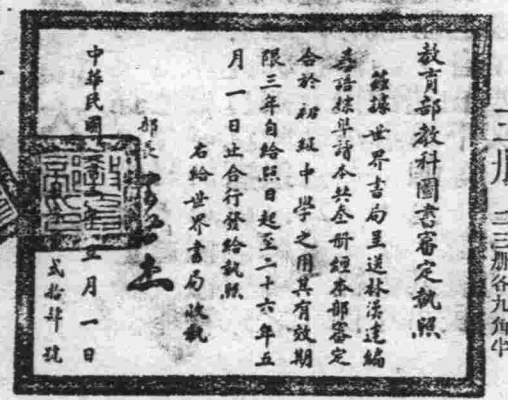 册各九角半
教育部教科圖書審定執照
茲據世界書局呈送林漢達編
英語標準讀本共叁册經本部審定
合於初級中學之用其有效期
限三年自給照日起至二十六年五
月一日止合行發給執照
右給世界書局收執
部長
中華民國年五月一日
貳拾肆號